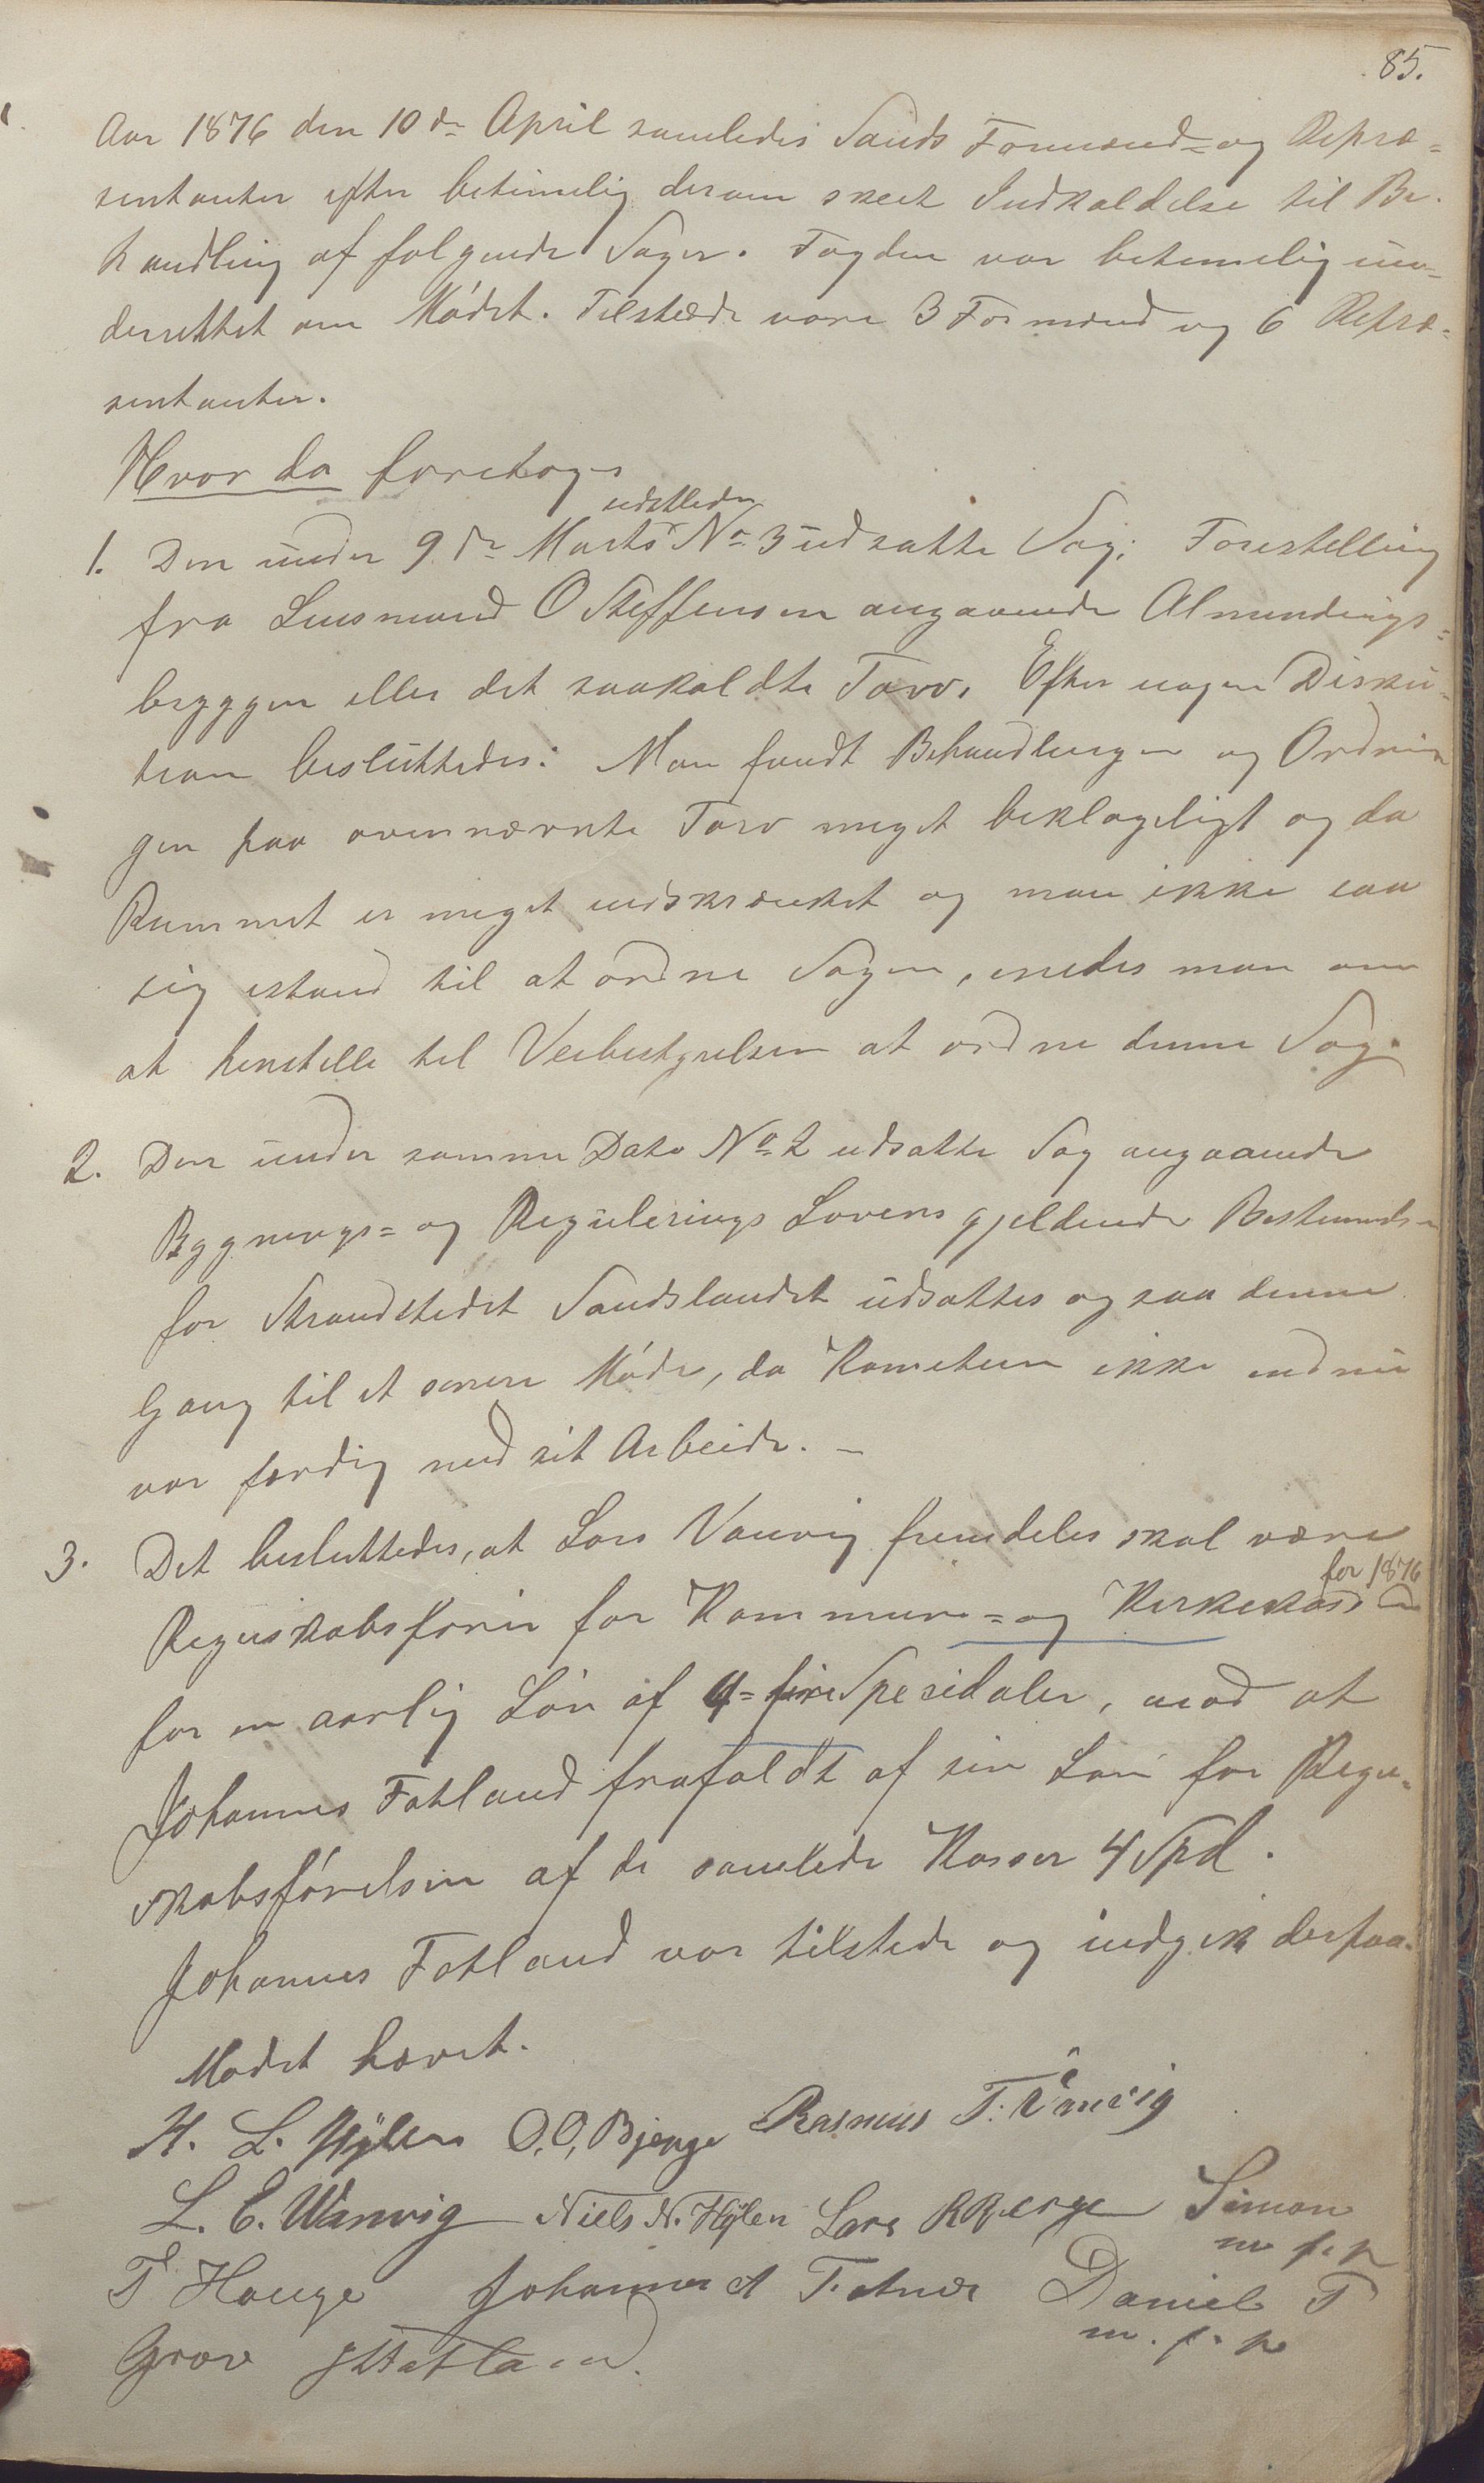 85.
Aar 1876 den 10de April samledes Sands Formænd- og Repræ-
sentanter efter betimelig derom skeet Indkaldelse til Be-
handling af følgende Sager. Fogden var betimelig un-
derrettet om Mødet. Tilstæde vare 3 Formænd og 6 Repræ-
sentanter.
Hvor da foretoges
udstæder
1. Den under 9de Marts No 3 udsatte Sag: Forestilling
fra Lensmand O Steffensen angaaende Almendings-
bryggen eller det saakaldte Torv. Efter nogen Disku-
tion besluttedes: Man fandt Behandlingen og Ordnin
gen paa ovennævnte Torv meget beklageligt og da
Rummet er meget indskrænket og man ikke saa
sig istand til at ordne Sagen, enedes man om
at henstille til Veibestyrelsen at ordne denne Sag.
2. Den under samme Dato No 2 udsatte Sag angaaende
Bygnings- og Regulerings Lovens gjeldende Bestemmelser
for Strandstedet Sandslandet udsattes ogsaa denne
Gang til et senere Møde, da Kometeen ikke endnu
var færdig med sit Arbeide. -
3. Det besluttedes, at Lars Vanvig fremdeles skal være
for 1876
Regnskabsfører for Kommune- og Kirkekassen
for en aarlig Løn af 4 = fire Spesidaler, mod at
Johannes Fatland frafaldt af sin Løn for Regn-
skabsførelsen af de samlede Kasser 4 Spd.
Johannes Fatland var tilstede og indgik derpaa.
Mødet hævet.
H. L. Hylen O. O. Bjerge Rasmus T. Vanvig
L. E. Wanvig Niels N. Hylen Lars R Berge Simon
m. f. p
T Hauge Johannes A Daniel T
m. f. p
Grov J Fatland.